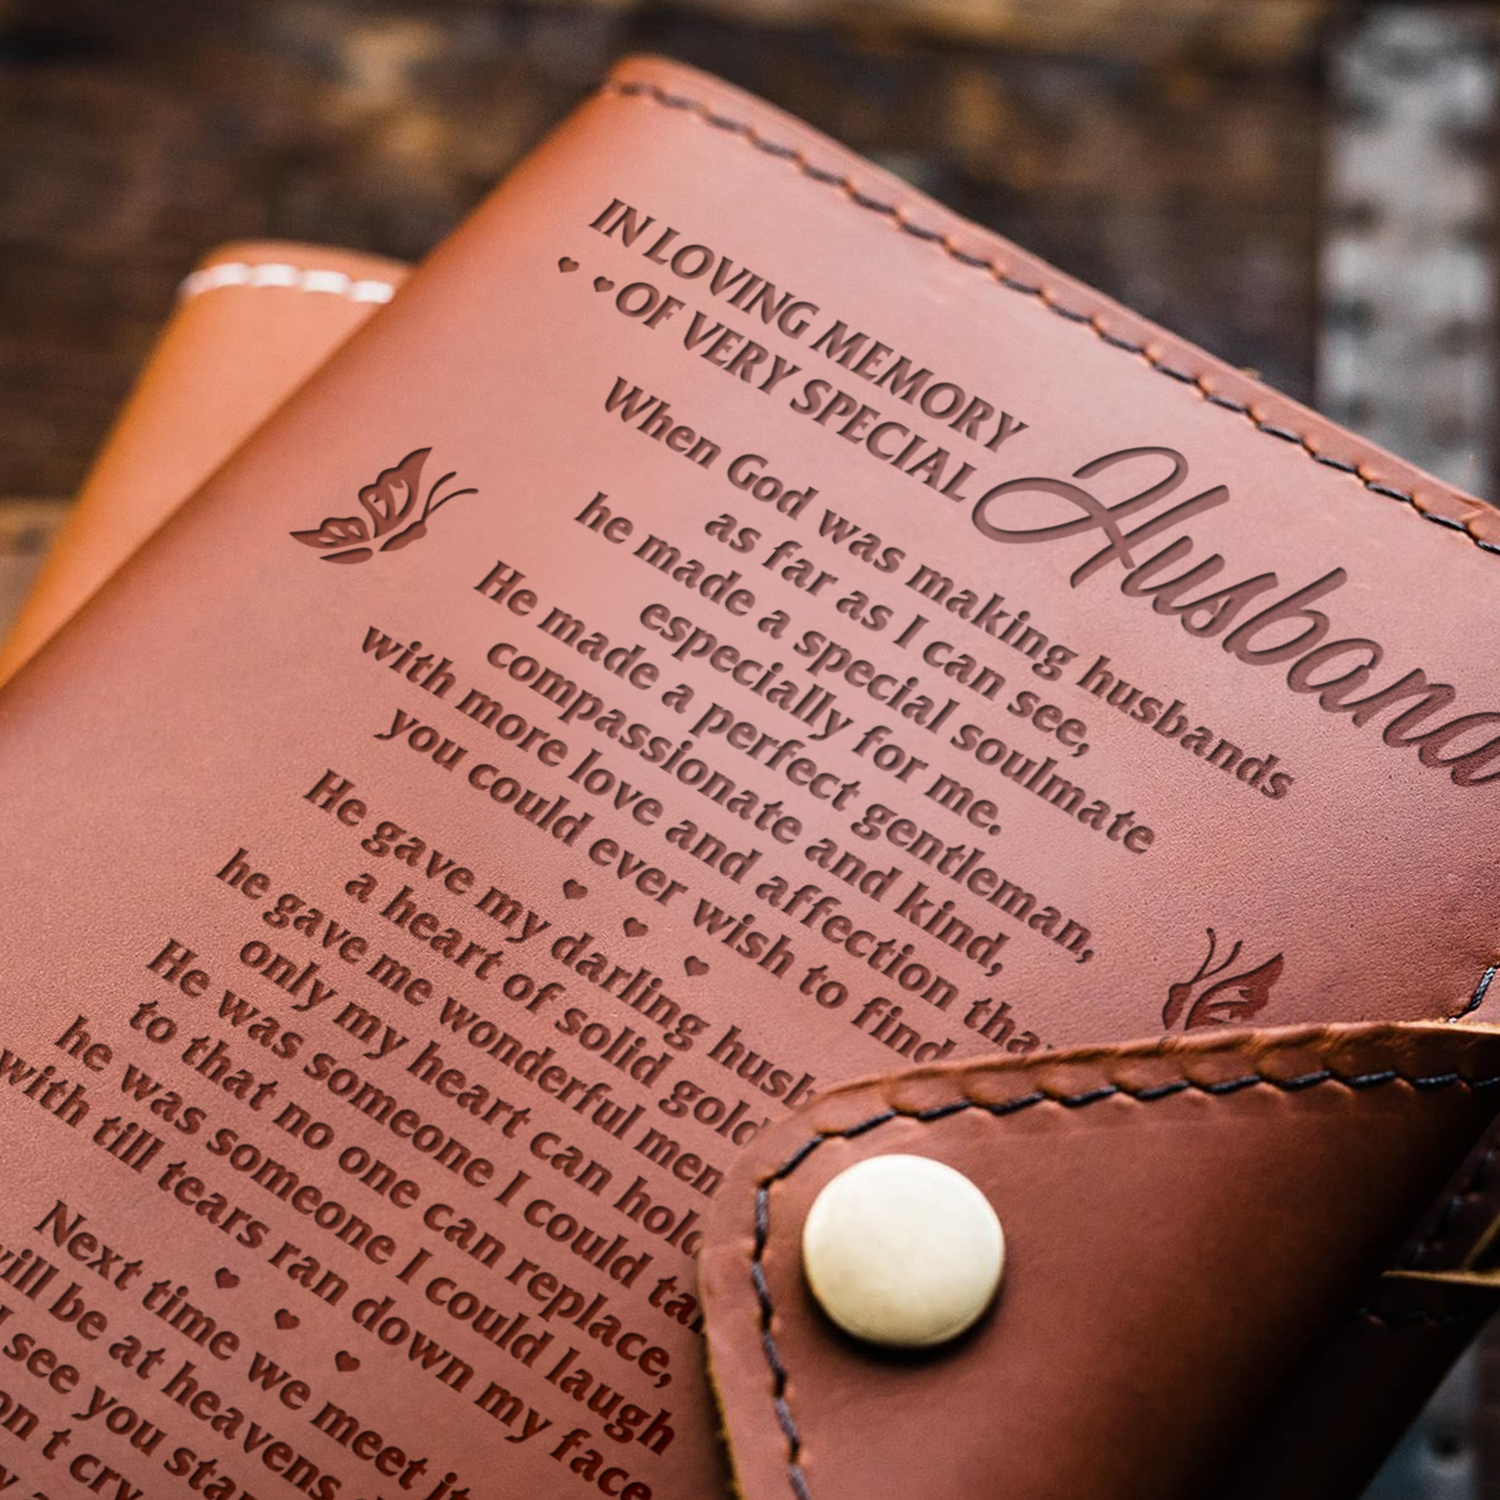 IN LOVING MEMORY
OF VERY SPECIAL
Husband
When God was making husbands
as far as I can see,
he made a special soulmate
especially for me.
He made a perfect gentleman,
compassionate and kind,
with more love and affection
you could ever wish to find
He gave my darling
a heart of solid gold
he gave me wonderful
only my heart can hold
He was someone I could
to that no one can replace,
he was someone I could laugh
with till tears ran down my face
Next time we meet
be at heavens
see you
cry